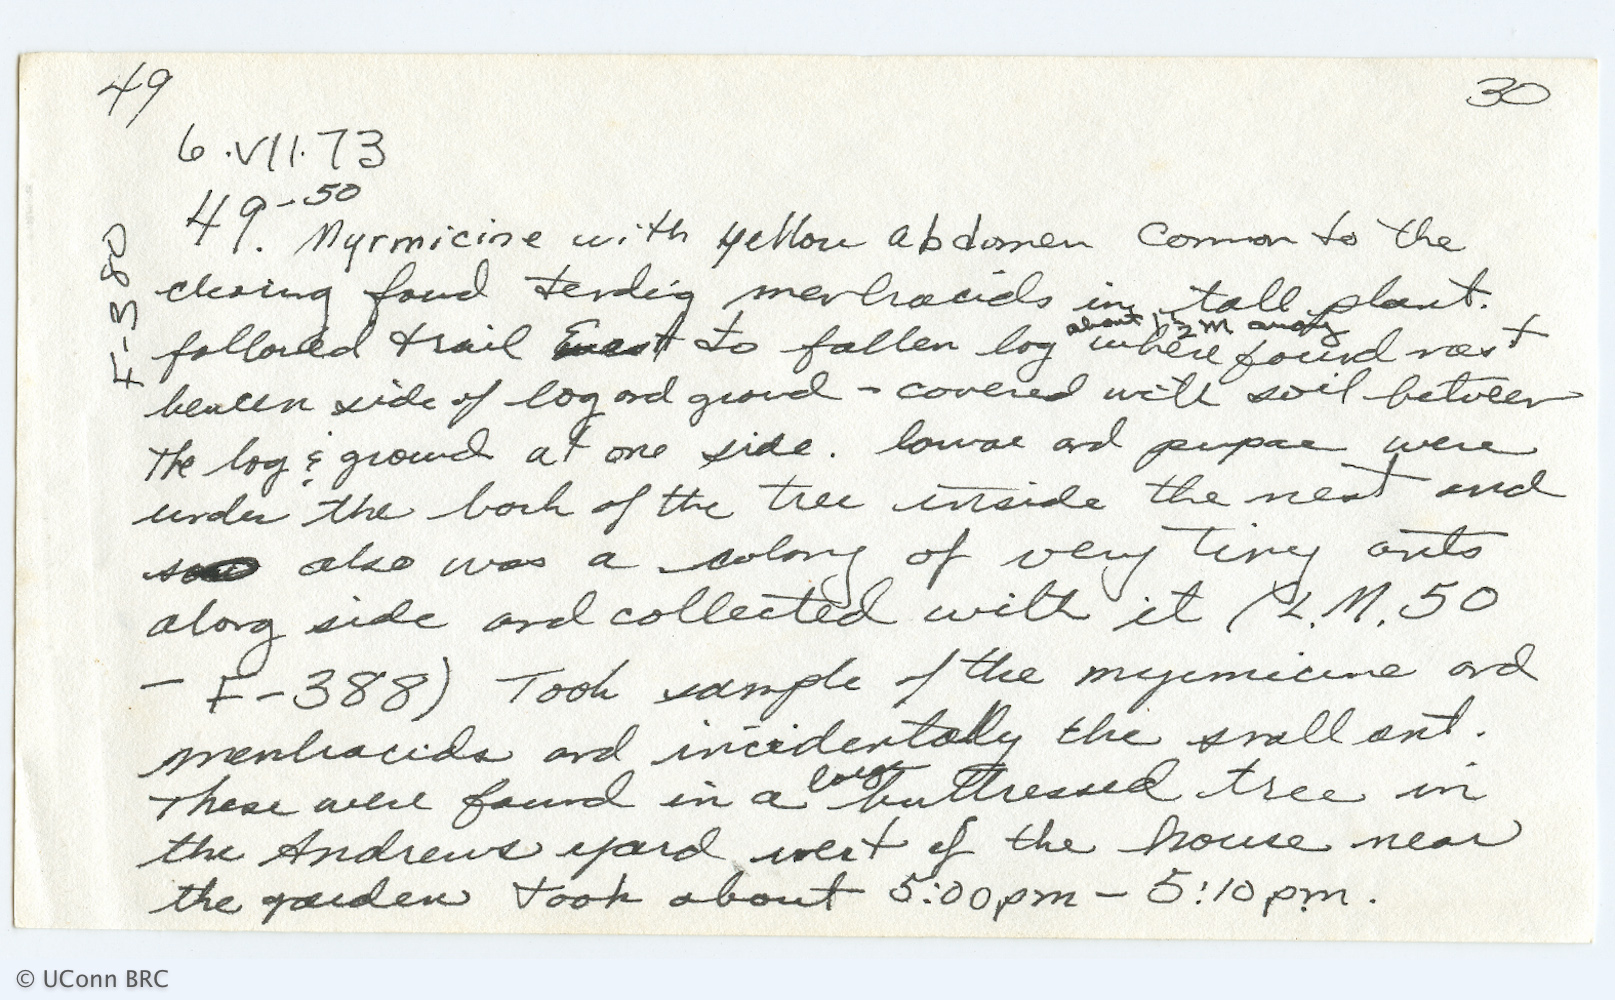 49
30
6.VII.73
49-50
F-380
49. Myrmicine with yellow abdomen common to the
clearing found tending membracids in tall plant.
followed trail East to fallen log about 1 1/2 M away where found nest
beween side of log and ground - covered with soil between
the log & ground at one side. larvae and pupae were
under the bark of the tree inside the nest and
also was a colony of very tiny ants
along side and collected with it (L.M. 50
- F-388) Took sample of the myrmicine and
membracids and incidentally the small ant.
These were found in a large buttressed tree in
the Andrews yard west of the house near
the garden took about 5:00pm - 5:10pm.
© UConn BRC